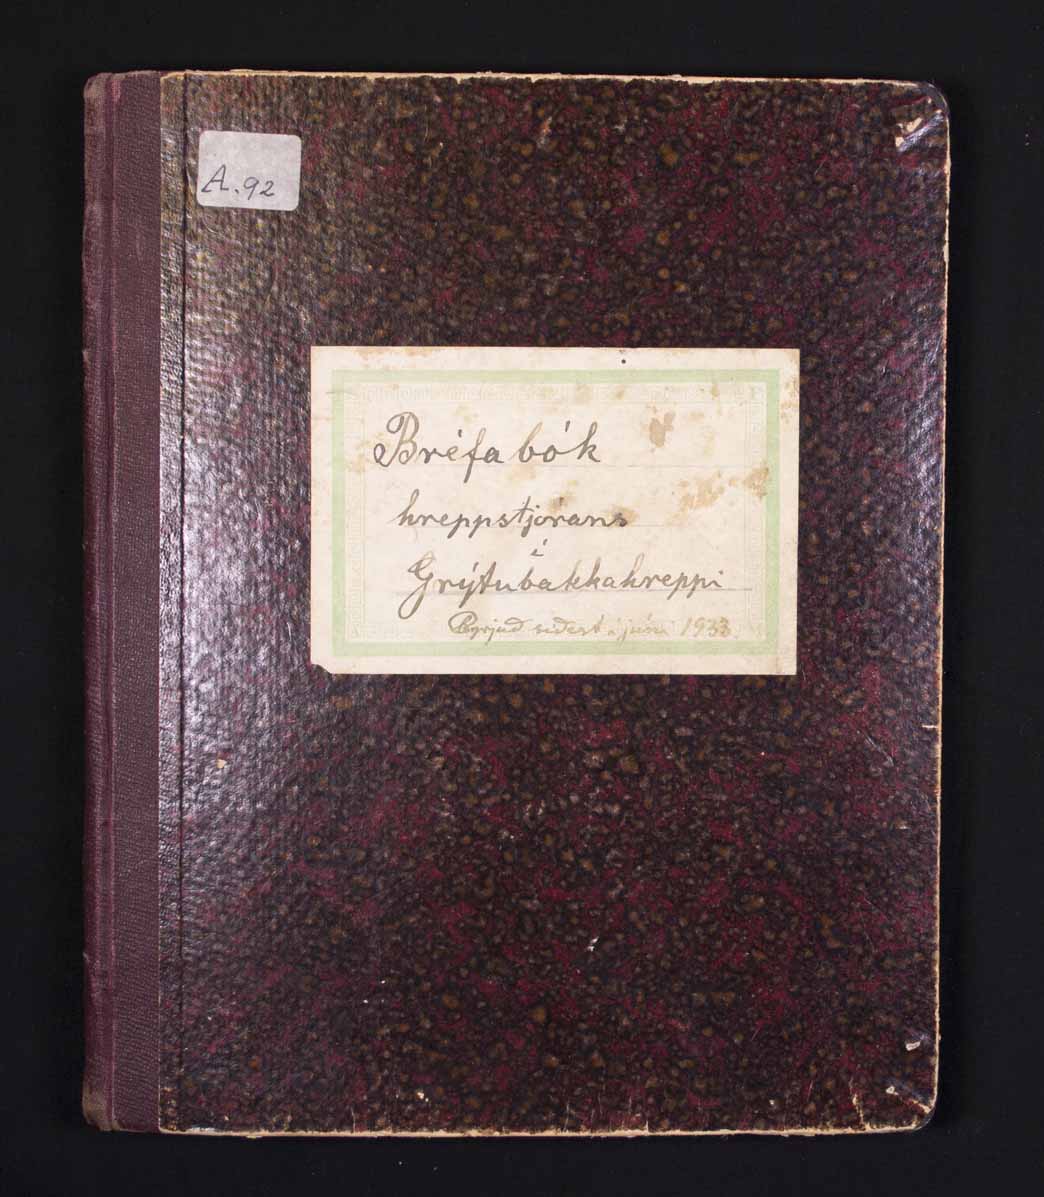 A.92
Bréfabók
hreppstjórans
í
Grýtubakkahreppi
Byrjuð síðast í júní 1933